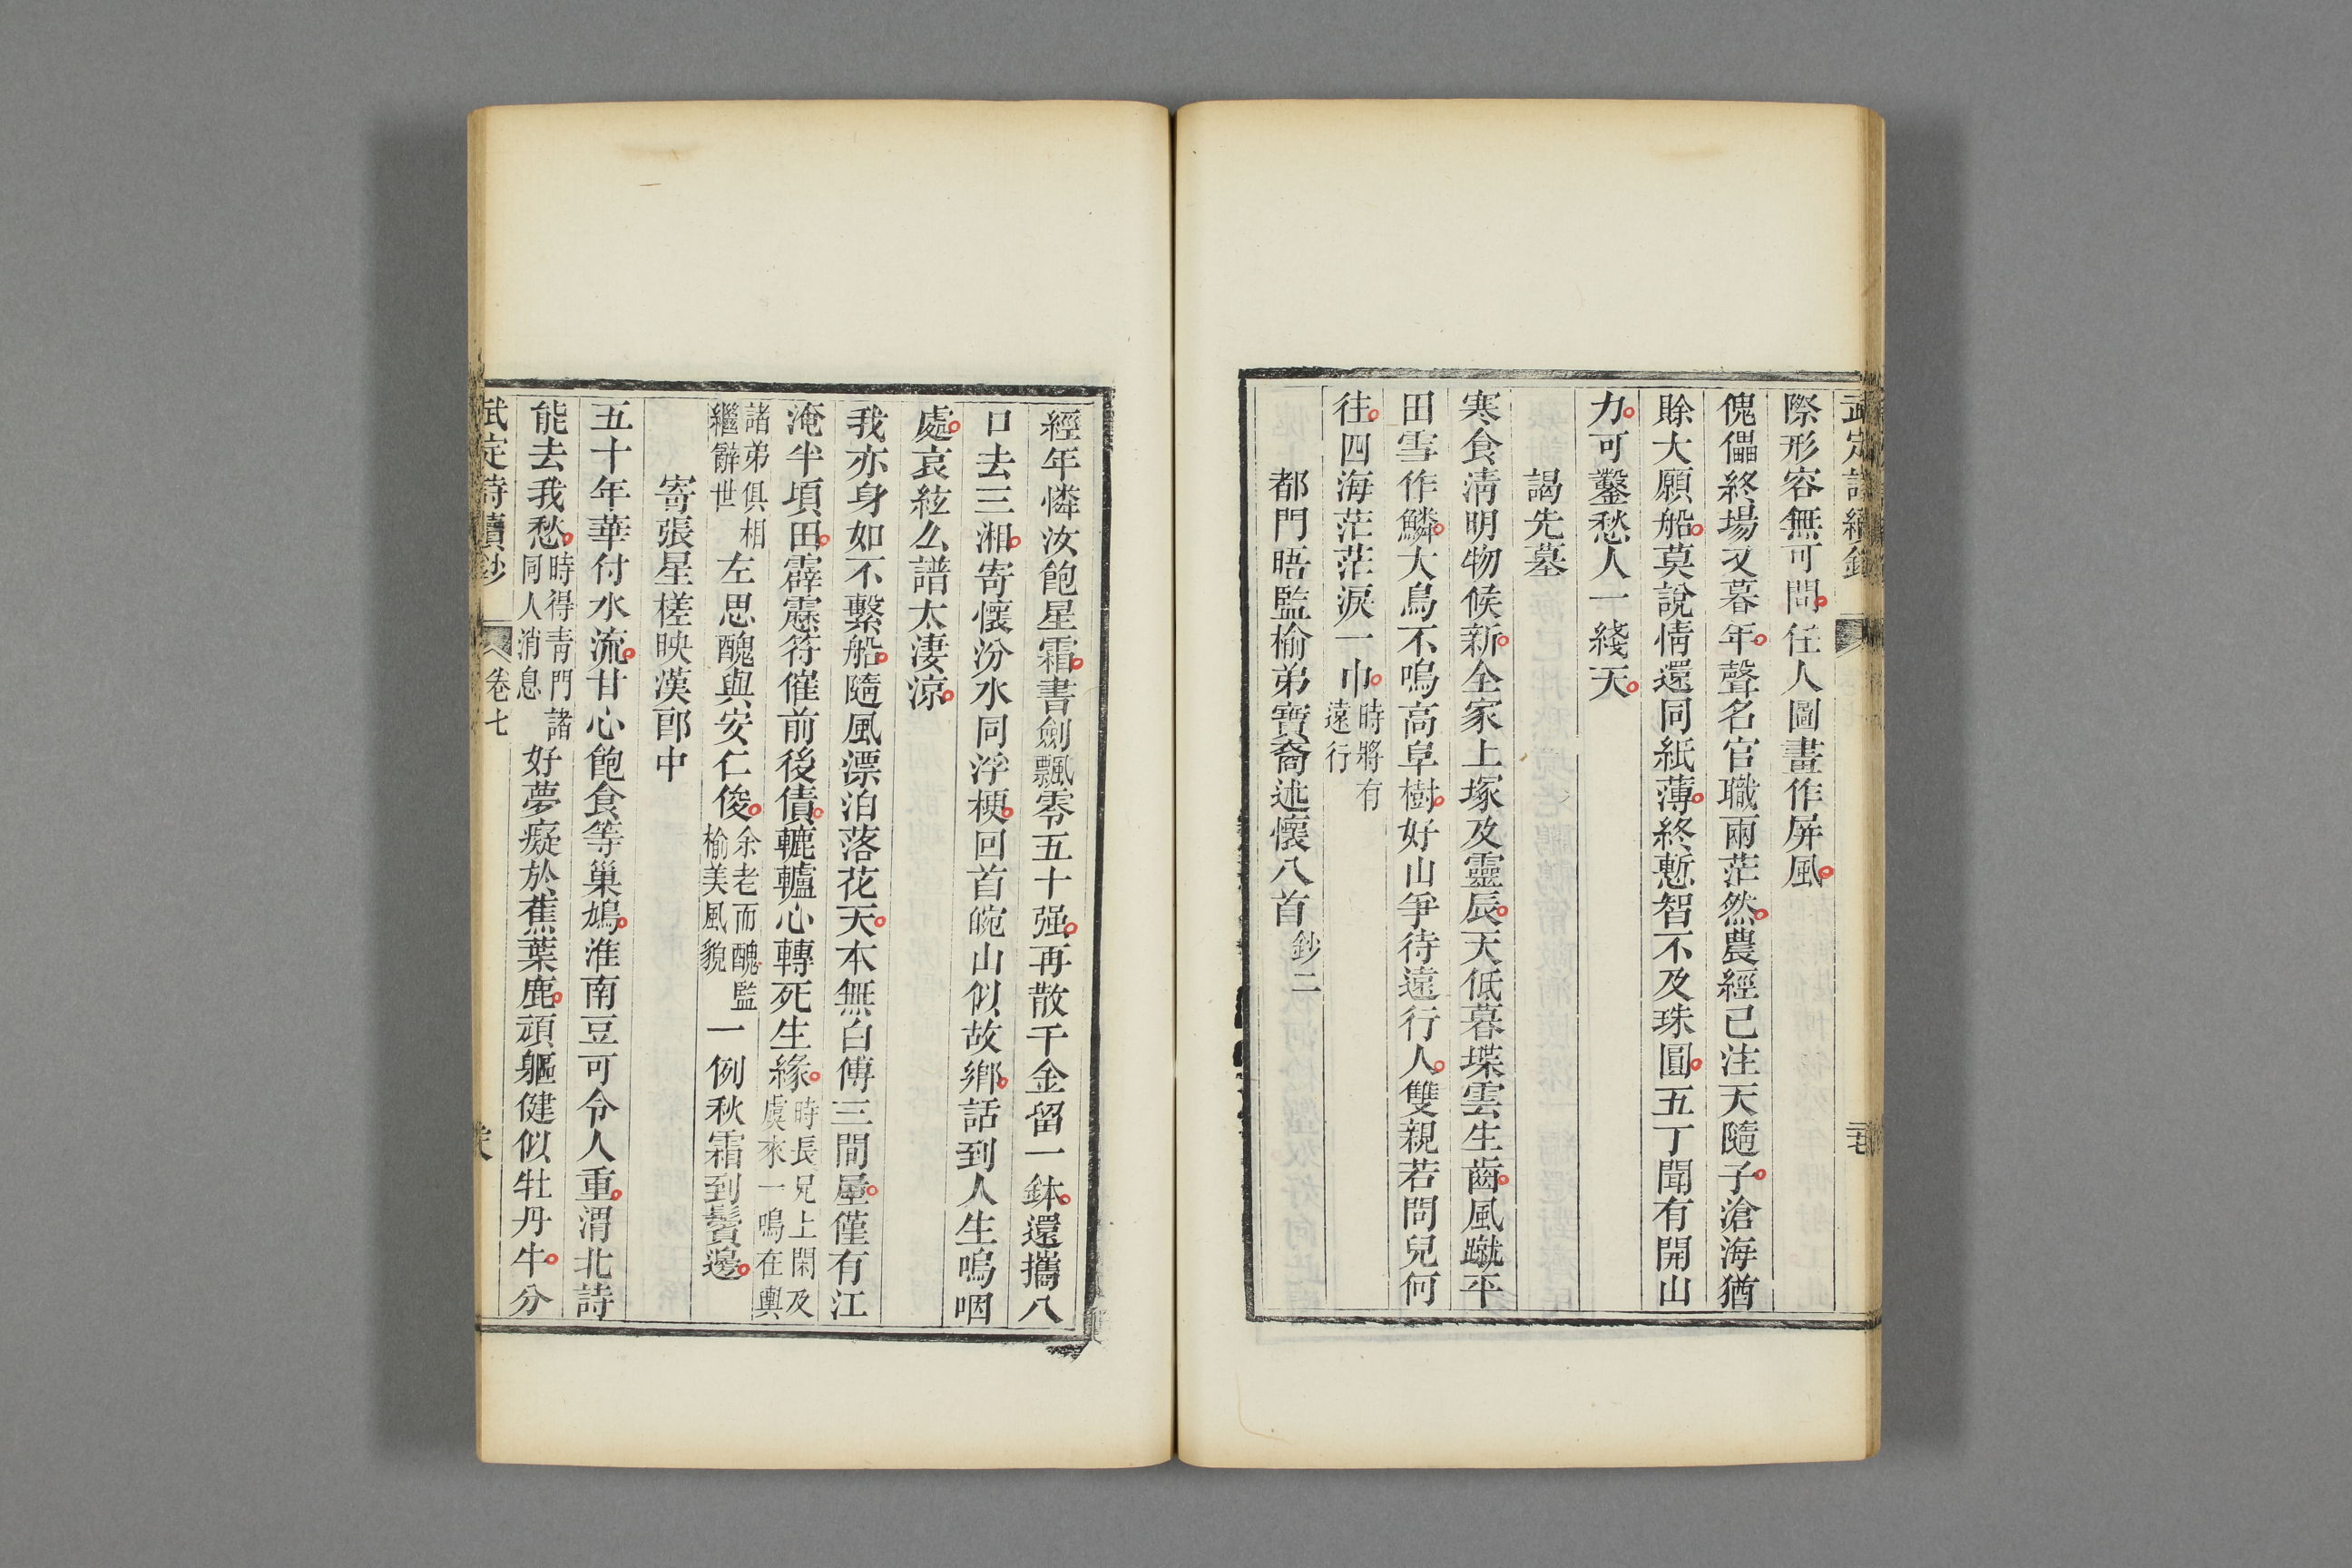 武定詩續鈔
際形容無可問任人圖畫作屏風
傀儡終場又暮年聲名官職兩茫然農經已注天隨子滄海猶
賖大願船莫說情還同紙薄終慙智不及珠圓五丁聞有開山
力可鑿愁人一綫天
謁先墓
寒食淸明物候新全家上塚及靈辰天低暮堞雲生齒風蹴平
田雪作鱗大鳥不鳴高阜樹好山爭待遠行人雙親若問兒何
往四海茫茫淚一巾時將有遠行
都門晤監榆弟寶裔述懷八首鈔二
經年憐汝飽星霜書劍飄零五十强再散千金留一鉢還攜八
口去三湘寄懷汾水同浮梗回首皖山似故鄉話到人生嗚咽
處哀絃么譜太淒涼
我亦身如不繫船隨風漂泊落花天本無白傅三間屋僅有江
淹半頃田霹靂符催前後債轆轤心轉死生緣時長兄上閑及虞來一鳴在輿
諸弟俱相繼辭世左思醜與安仁俊余老而醜監榆美風貌一例秋霜到鬢邊
寄張星槎映漢郎中
五十年華付水流甘心飽食等巢鳩淮南豆可令人重渭北詩
能去我愁時得靑門諸同人消息好夢癡於蕉葉鹿頑軀健似牡丹牛分
武定詩續鈔 卷七